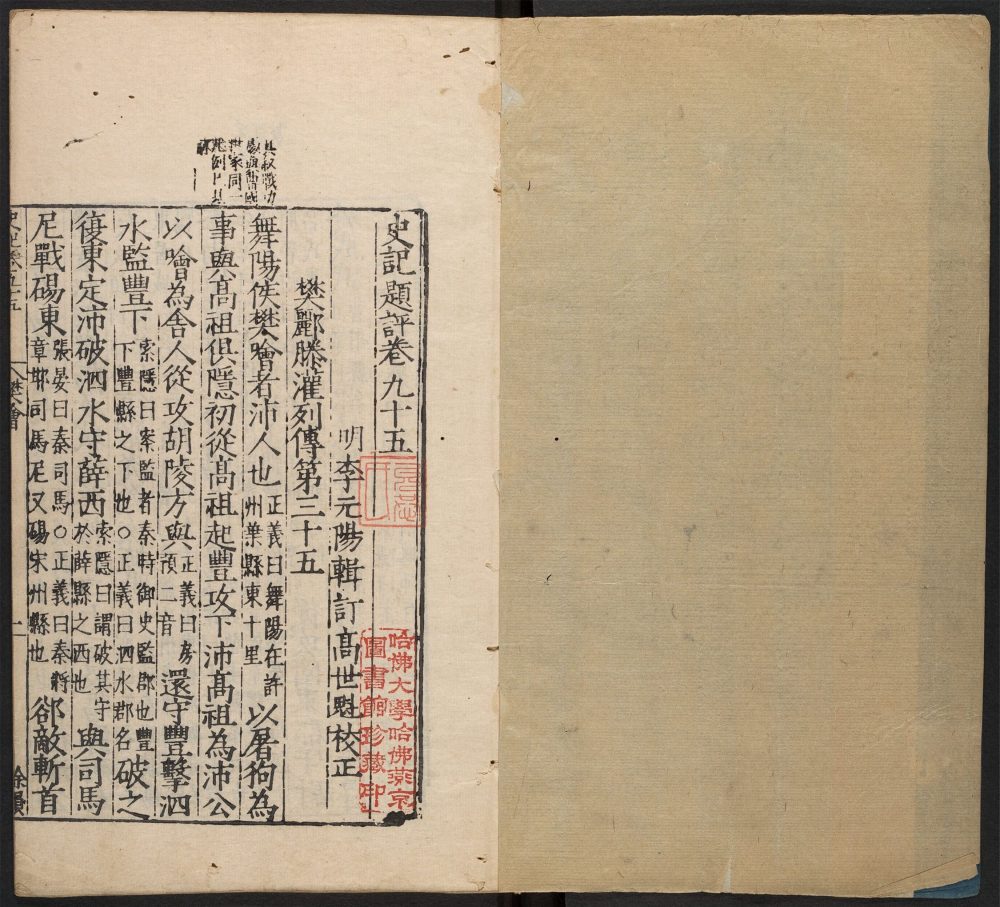 史記題評卷九十五
明 李元陽輯訂 高世魁校正
樊酈滕灌列傳第三十五
舞陽侯樊噲者沛人也 正義曰舞陽在許州葉縣東十里 以屠狗為
事與髙祖俱隱初從髙祖起豐攻下沛髙祖為沛公
以噲為舍人從攻胡陵方與 正義曰房預二音 還守豐擊泗
水監豐下 索隱曰案監者秦時御史監郡也豐下豐縣之下也○正義曰泗水郡名 破之
復東定沛破泗水守薛西 索隱曰謂破其守於薛縣之西也 與司馬
𡰥戰碭東 張晏曰秦司馬○正義曰秦將章邯司馬𡰥又碭宋州縣也 郤敵斬首
史記卷九十五 樊噲 一
哈佛大學哈佛燕京
圖書館珍藏印